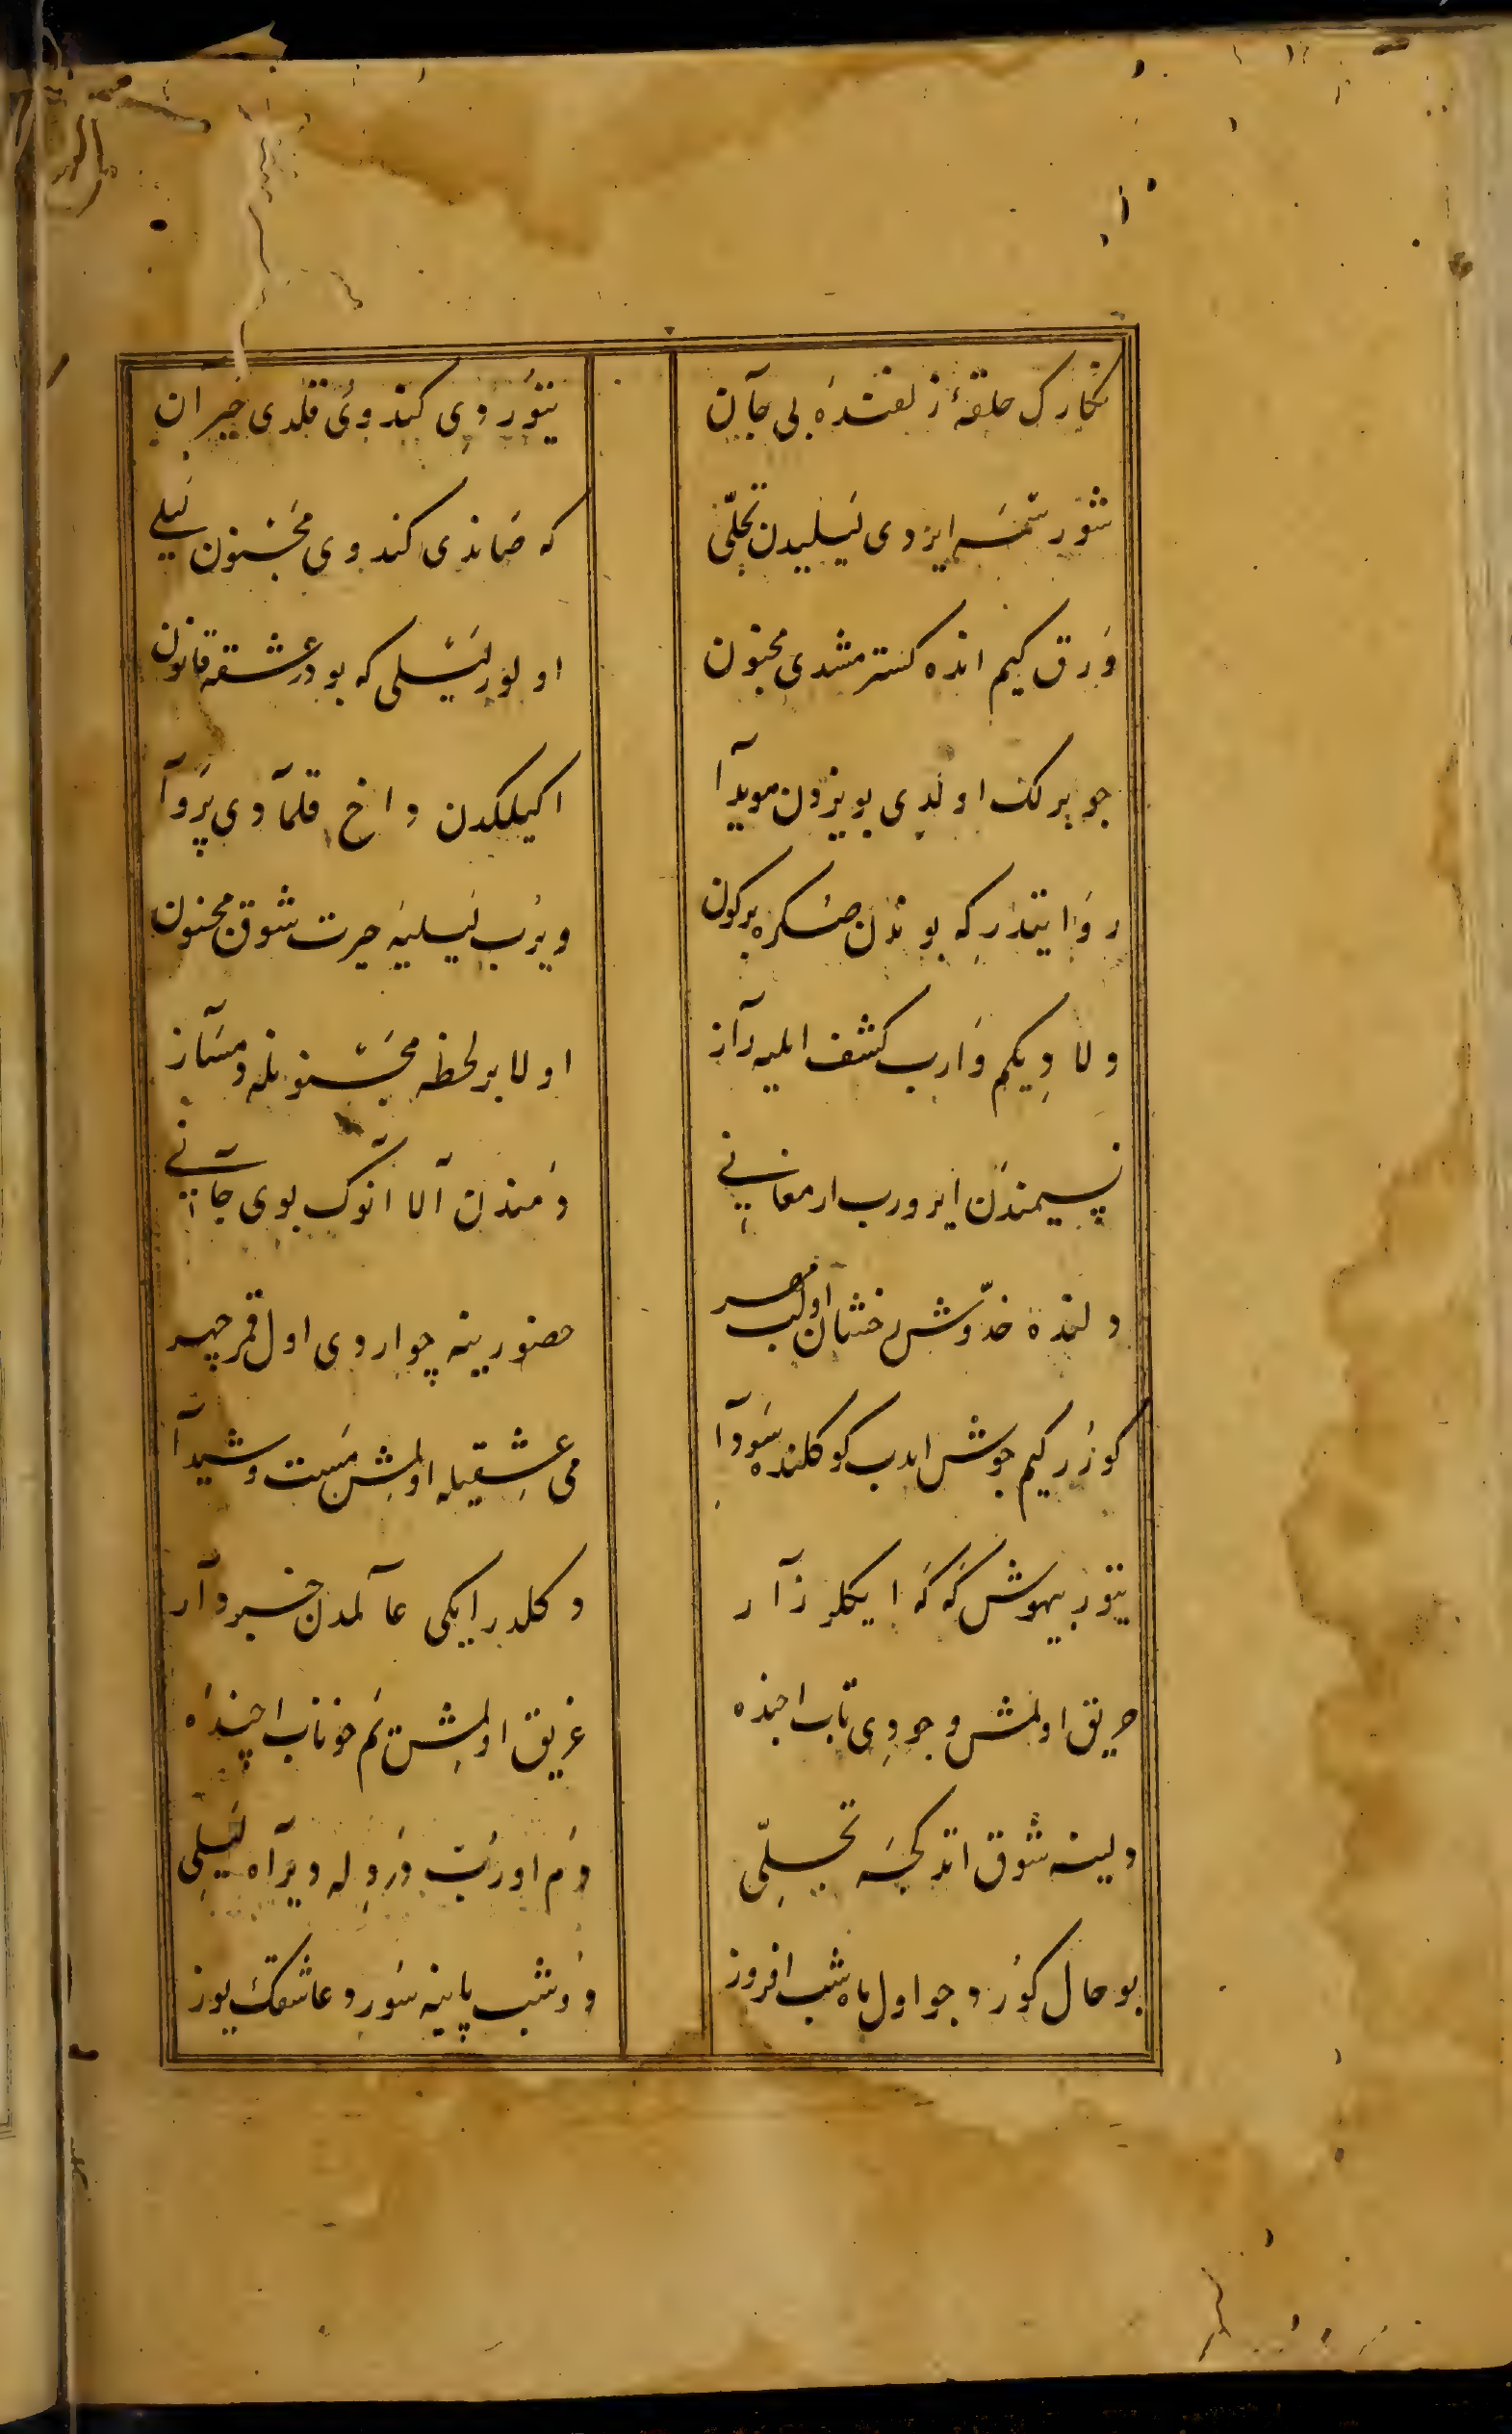 نكارك حلقۀ زلفنده بی جان یتوردی كندوئی قلدی حیران
شو رسمه ایردی لیلیدن تجلّی كه صاندی كندوی مجنون لیلی
ورق كیم انده كسترمشدی مجنون اولور لیلی كه بودر عشقه قانون
چو یرلك اولدی بو یزدن هویدا ایكیلكدن داخ قلمادی پروا
روایتدر كه بوندن صكره بركون ویرب لیلیه حیرت شوق مجنون
دلادیكم وارب كشف ایلیه راز اولا بر لحظه مجنونله دمساز
نسیمندن ایرورب ارمغانی دمندن آلا انوك بوی جانی
دلنده خدّوش رخشان اولب مهر حضورینه چو اردی اول قمر چهر
كورر كیم جوش ایدب كوكلنده سودا می عشقیله اولمش مست و شیدا
یتور بیهوش كه كه ایكلر زار دكلدر ایكی عالمدن خبردار
حریق اولمش وجودی تاب اچنده غریق اولمش تم خوناب اچنده
دلینه شوق اتدكجه تجلّی دم اورب دردله دیر آه لیلی
بو حال كوردجو اول ماه شب افروز دوشب پاینه سورد عاشقك یوز